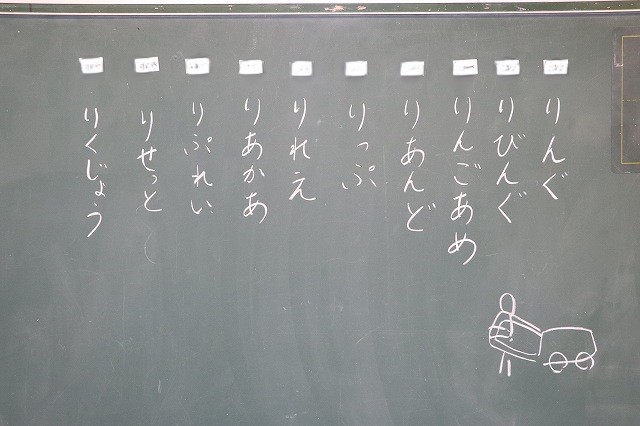 りんぐ
りびんぐ
りんごあめ
りあんど
りっぷ
りれえ
りあかあ
りぷれい
りせっと
りくじょう